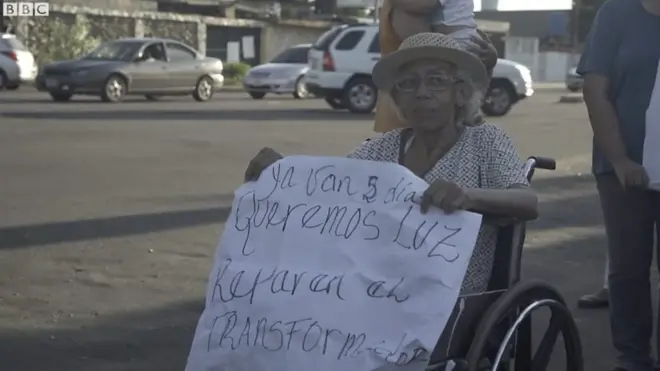 BBC
Ya van 5 día
Queremos LUZ
Reparen el
TRANSFORMador